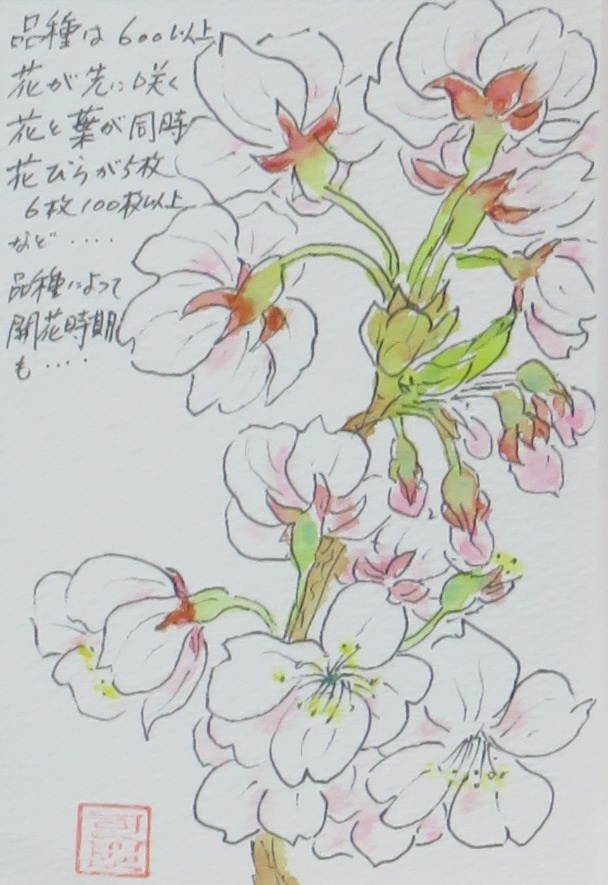 品種は600以上
花が先に咲く
花と葉が同時
花びらが5枚
6枚100枚以上
など‥‥
品種によって
開花時期
も‥‥